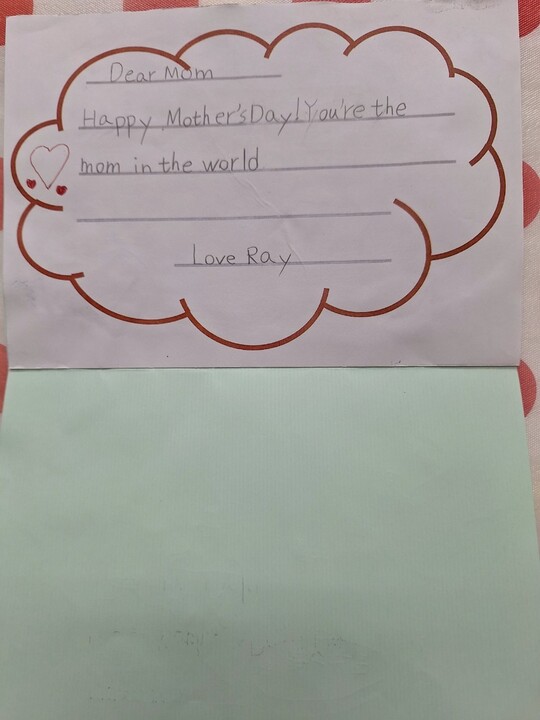 Dear Mom
Happy Mother's Day! You're the
mom in the world
Love Ray